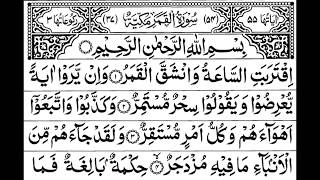 اٰیَاتُهَا ٥٥ (٥٤) سُوْرَةُ الْقَمَرِ مَكِّيَّةٌ (٣٧) رُكُوْعَاتُهَا ٣
بِسْمِ اللّٰهِ الرَّحْمٰنِ الرَّحِيْمِ
اِقْتَرَبَتِ السَّاعَةُ وَانْشَقَّ الْقَمَرُ ١ وَاِنْ يَّرَوْا اٰيَةً
يُّعْرِضُوْا وَيَقُوْلُوْا سِحْرٌ مُّسْتَمِرٌّ ٢ وَكَذَّبُوْا وَاتَّبَعُوْٓا
اَهْوَآءَهُمْ وَكُلُّ اَمْرٍ مُّسْتَقِرٌّ ٣ وَلَقَدْ جَآءَهُمْ مِّنَ
الْاَنْۢبَآءِ مَا فِيْهِ مُزْدَجَرٌ ٤ حِكْمَةٌۢ بَالِغَةٌ فَمَا